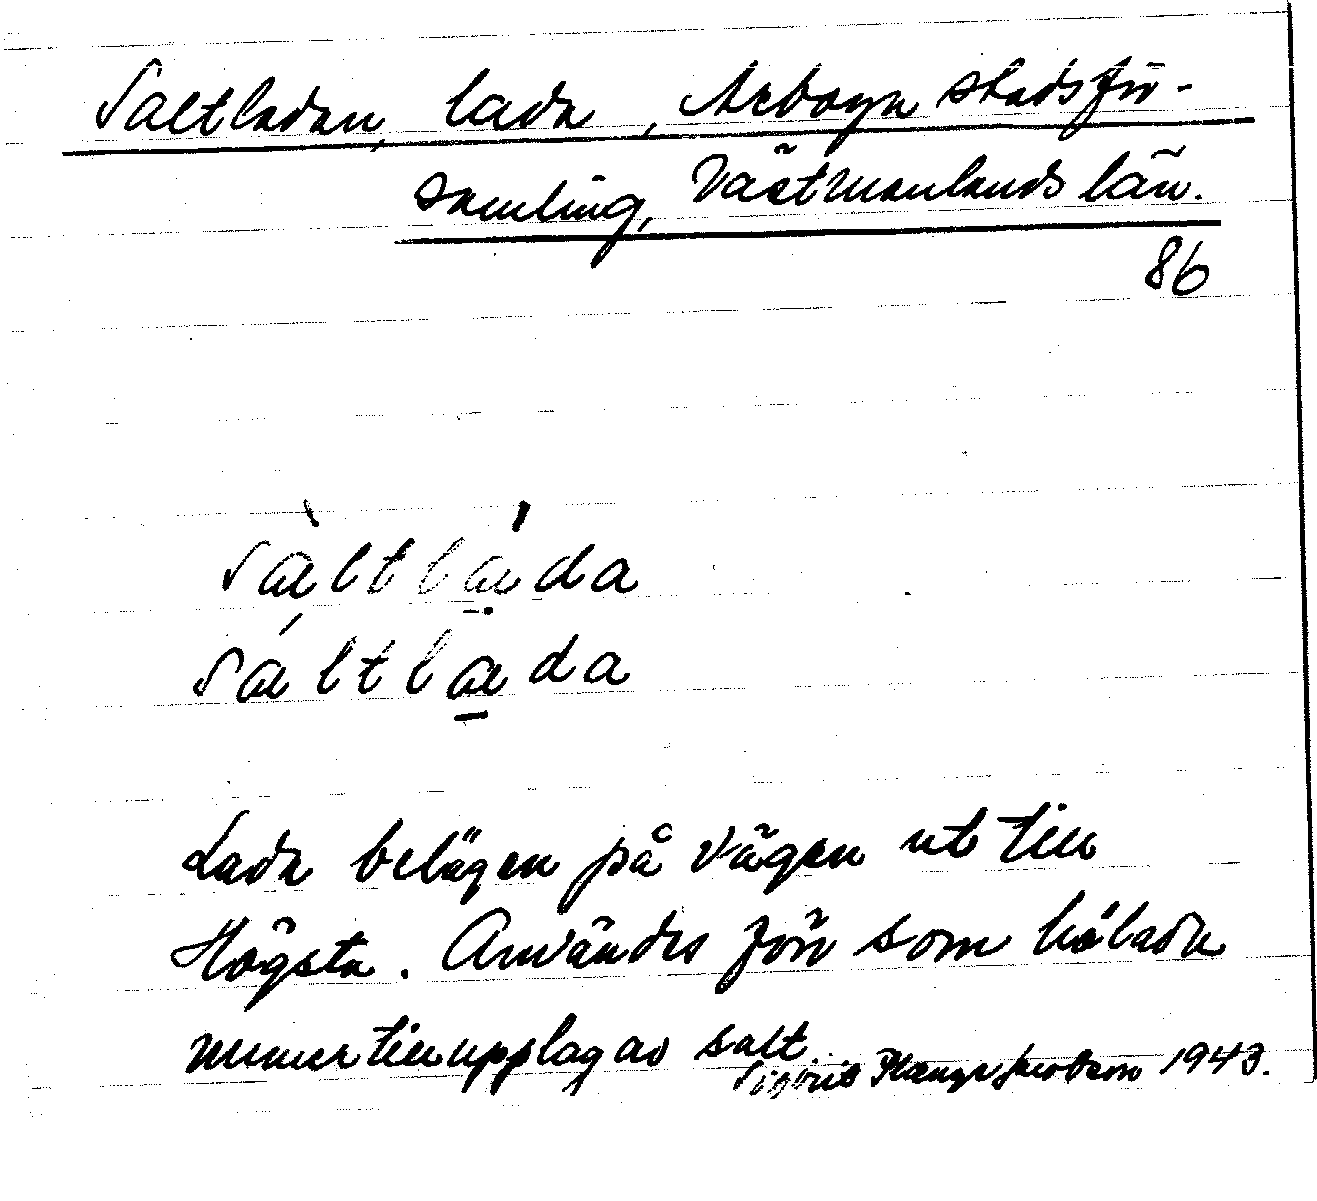 Saltladan, lada, Arboga stadsför-
samling, Västmanlands län.
86
sàltlá̱da
sáltla̱da
Lada belägen på vägen ut till
Högsta. Användes förr som hölada
numer till upplag av salt.
Sigbrit Plænge Jacobson 1943.